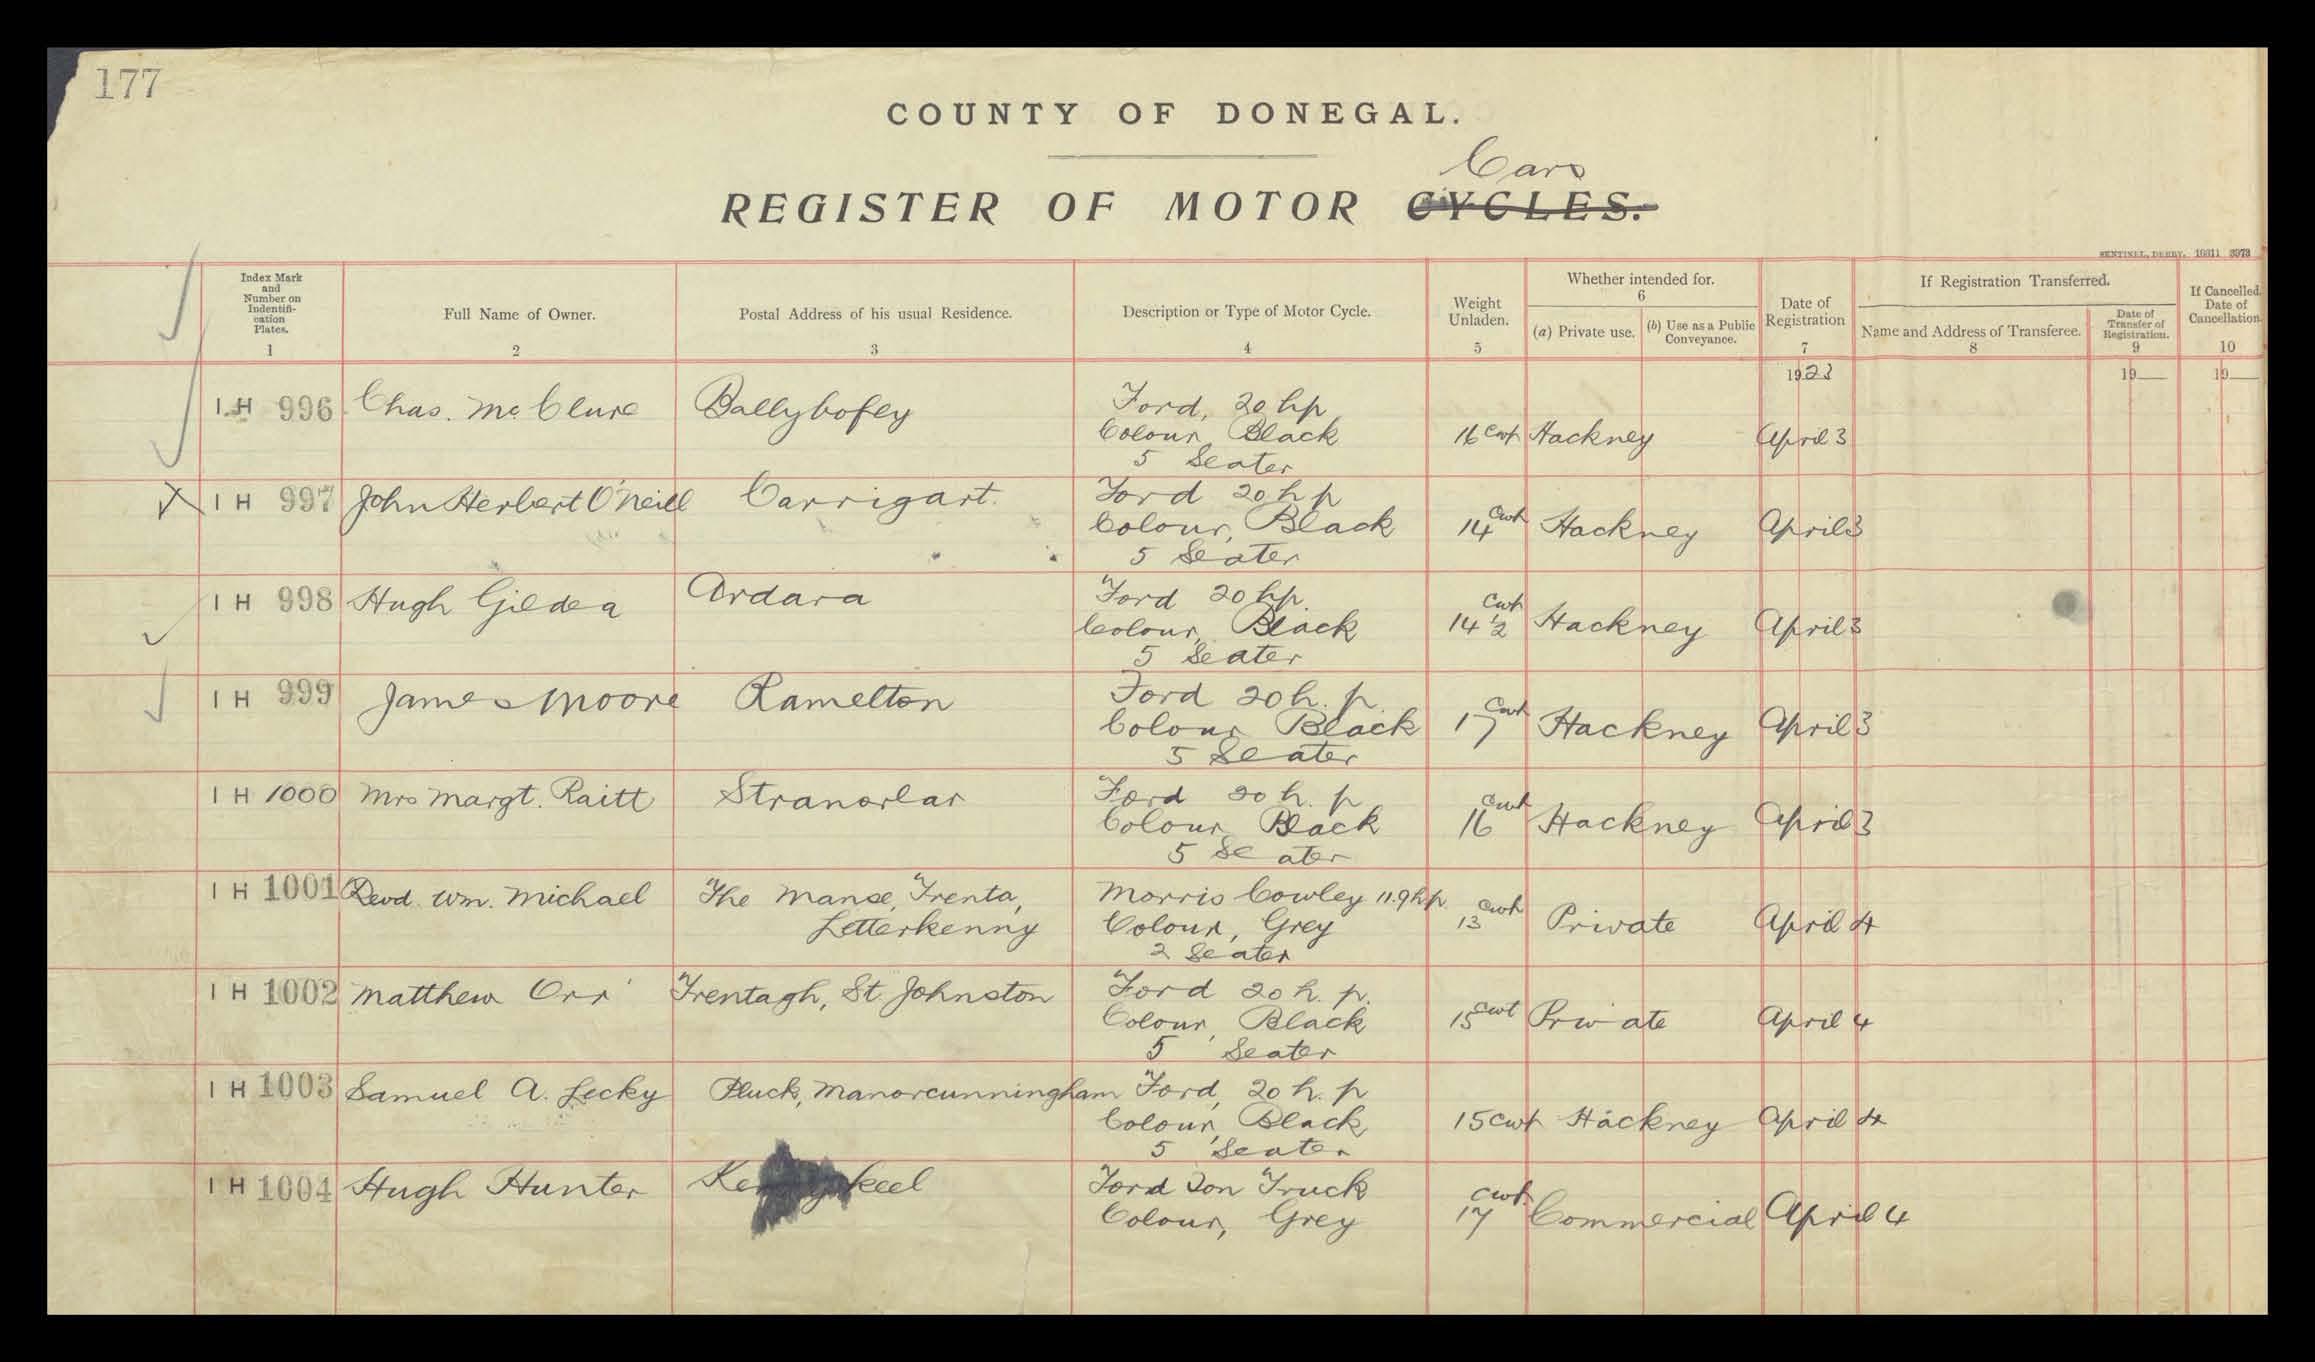 177
COUNTY OF DONEGAL.
Cars
REGISTER OF MOTOR CYCLES.
SENTINEL, DERRY. 16311 3973
Index Mark and Number on Indentifi-cation Plates. 1
Full Name of Owner. 2
Postal Address of his usual Residence. 3
Description or Type of Motor Cycle. 4
Weight Unladen. 5
Whether intended for. 6
(a) Private use.
(b) Use as a Public Conveyance.
Date of Registration 7
If Registration Transferred.
Name and Address of Transferee. 8
Date of Transfer of Registration. 9
If Cancelled. Date of Cancellation. 10
1923 19 19
I H 996 Chas. McClure Ballybofey Ford, 20 hp
Colour, Black 16 cwt Hackney April 3
5 Seater
I H 997 John Herbert O'Neill Carrigart. Ford 20 h p
Colour, Black 14 cwt Hackney April 3
5 Seater
I H 998 Hugh Gildea Ardara Ford 20 hp.
Colour, Black 14 1/2 cwt Hackney April 3
5 Seater
I H 999 James Moore Ramelton Ford 20 h. p.
Colour Black 17 cwt Hackney April 3
5 Seater
I H 1000 Mrs Margt. Raitt Stranorlar Ford 20 h. p
Colour, Black 16 cwt Hackney April 3
5 Seater
I H 1001 Revd. Wm. Michael The Manse, Trenta, Morris Cowley 11.9 h.p.
Letterkenny Colour, Grey 13 cwt Private April 4
2 Seater
I H 1002 Matthew Orr Trentagh, St. Johnston Ford 20 h. p.
Colour, Black 15 cwt Private April 4
5 Seater
I H 1003 Samuel A. Lecky Pluck, Manorcunningham Ford, 20 h. p
Colour, Black 15 cwt Hackney April 4
5 Seater
I H 1004 Hugh Hunter Ford Ton Truck
Colour, Grey 17 cwt. Commercial April 4